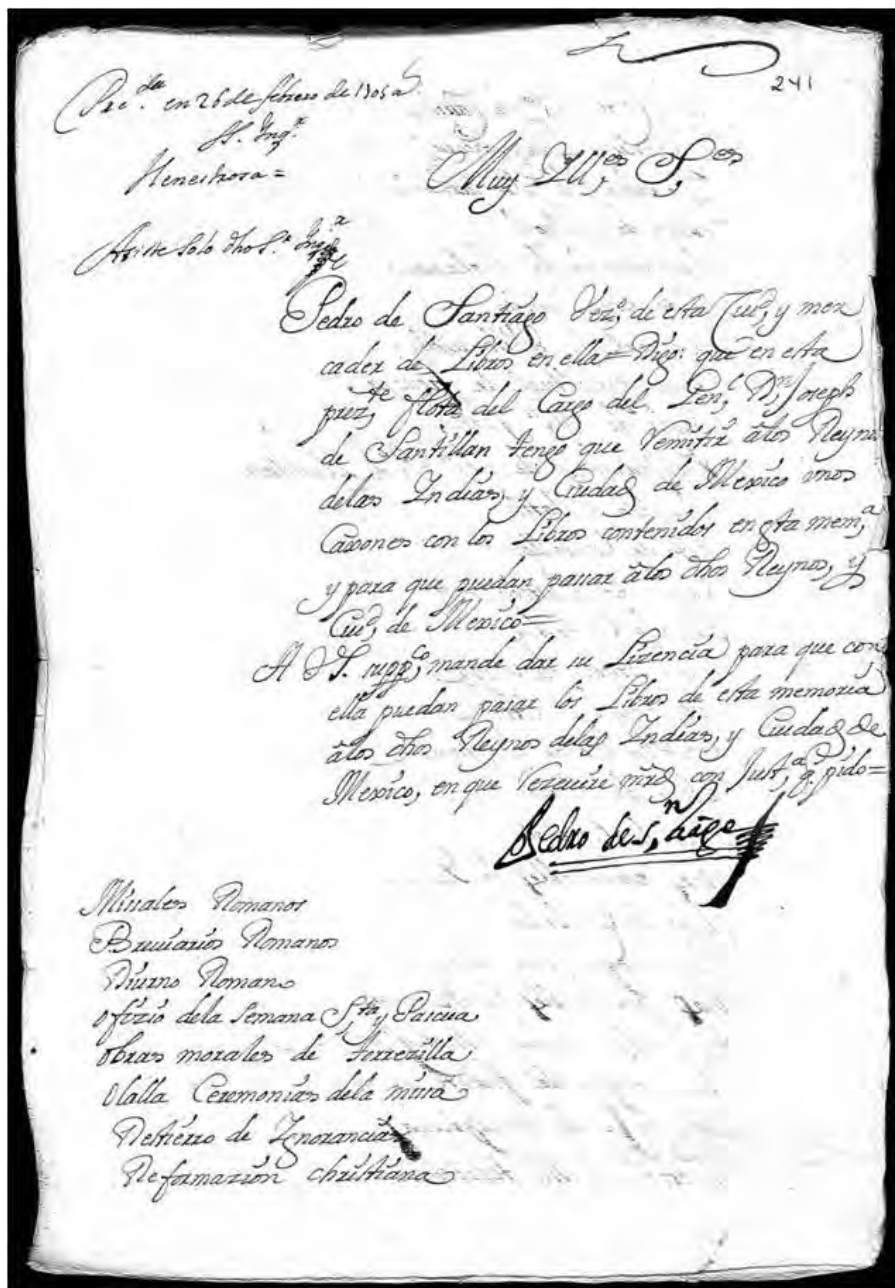 241
Pre.da en 26 de febrero de 1705 a
SS. Inq.r
Henestrosa =
Muy Ill.es S.res
Asiste solo dho S.r Inq.r
Pedro de Santiago Vez.o de esta Ciud, y mer
cader de Libros en ella = Digo: que en esta
prez.te flota del Cargo del Gen.l D.n Joseph
de Santillan tengo que remitir â los Reynos
delas Indias, y Ciudad de Mexico unos
Caxones con los Libros contenidos en esta mem.a
y para que puedan passar â los dhos Reynos, y
Ciud, de Mexico =
A V S. supp.co mande dar su Lizencia para que con
ella puedan pasar los Libros de esta memoria
â los dhos Reynos delas Indias, y Ciudad de
Mexico, en que rezevire mrd con Just.a q. pido =
Pedro de S.n tiâgo
Missales Romanos
Breviarios Romanos
Diurno Romano
ofizio dela Semana S.ta y Pascua
obras morales de
Olalla Ceremonias dela missa
Destierro de Ignorancias
Reformazion christiana